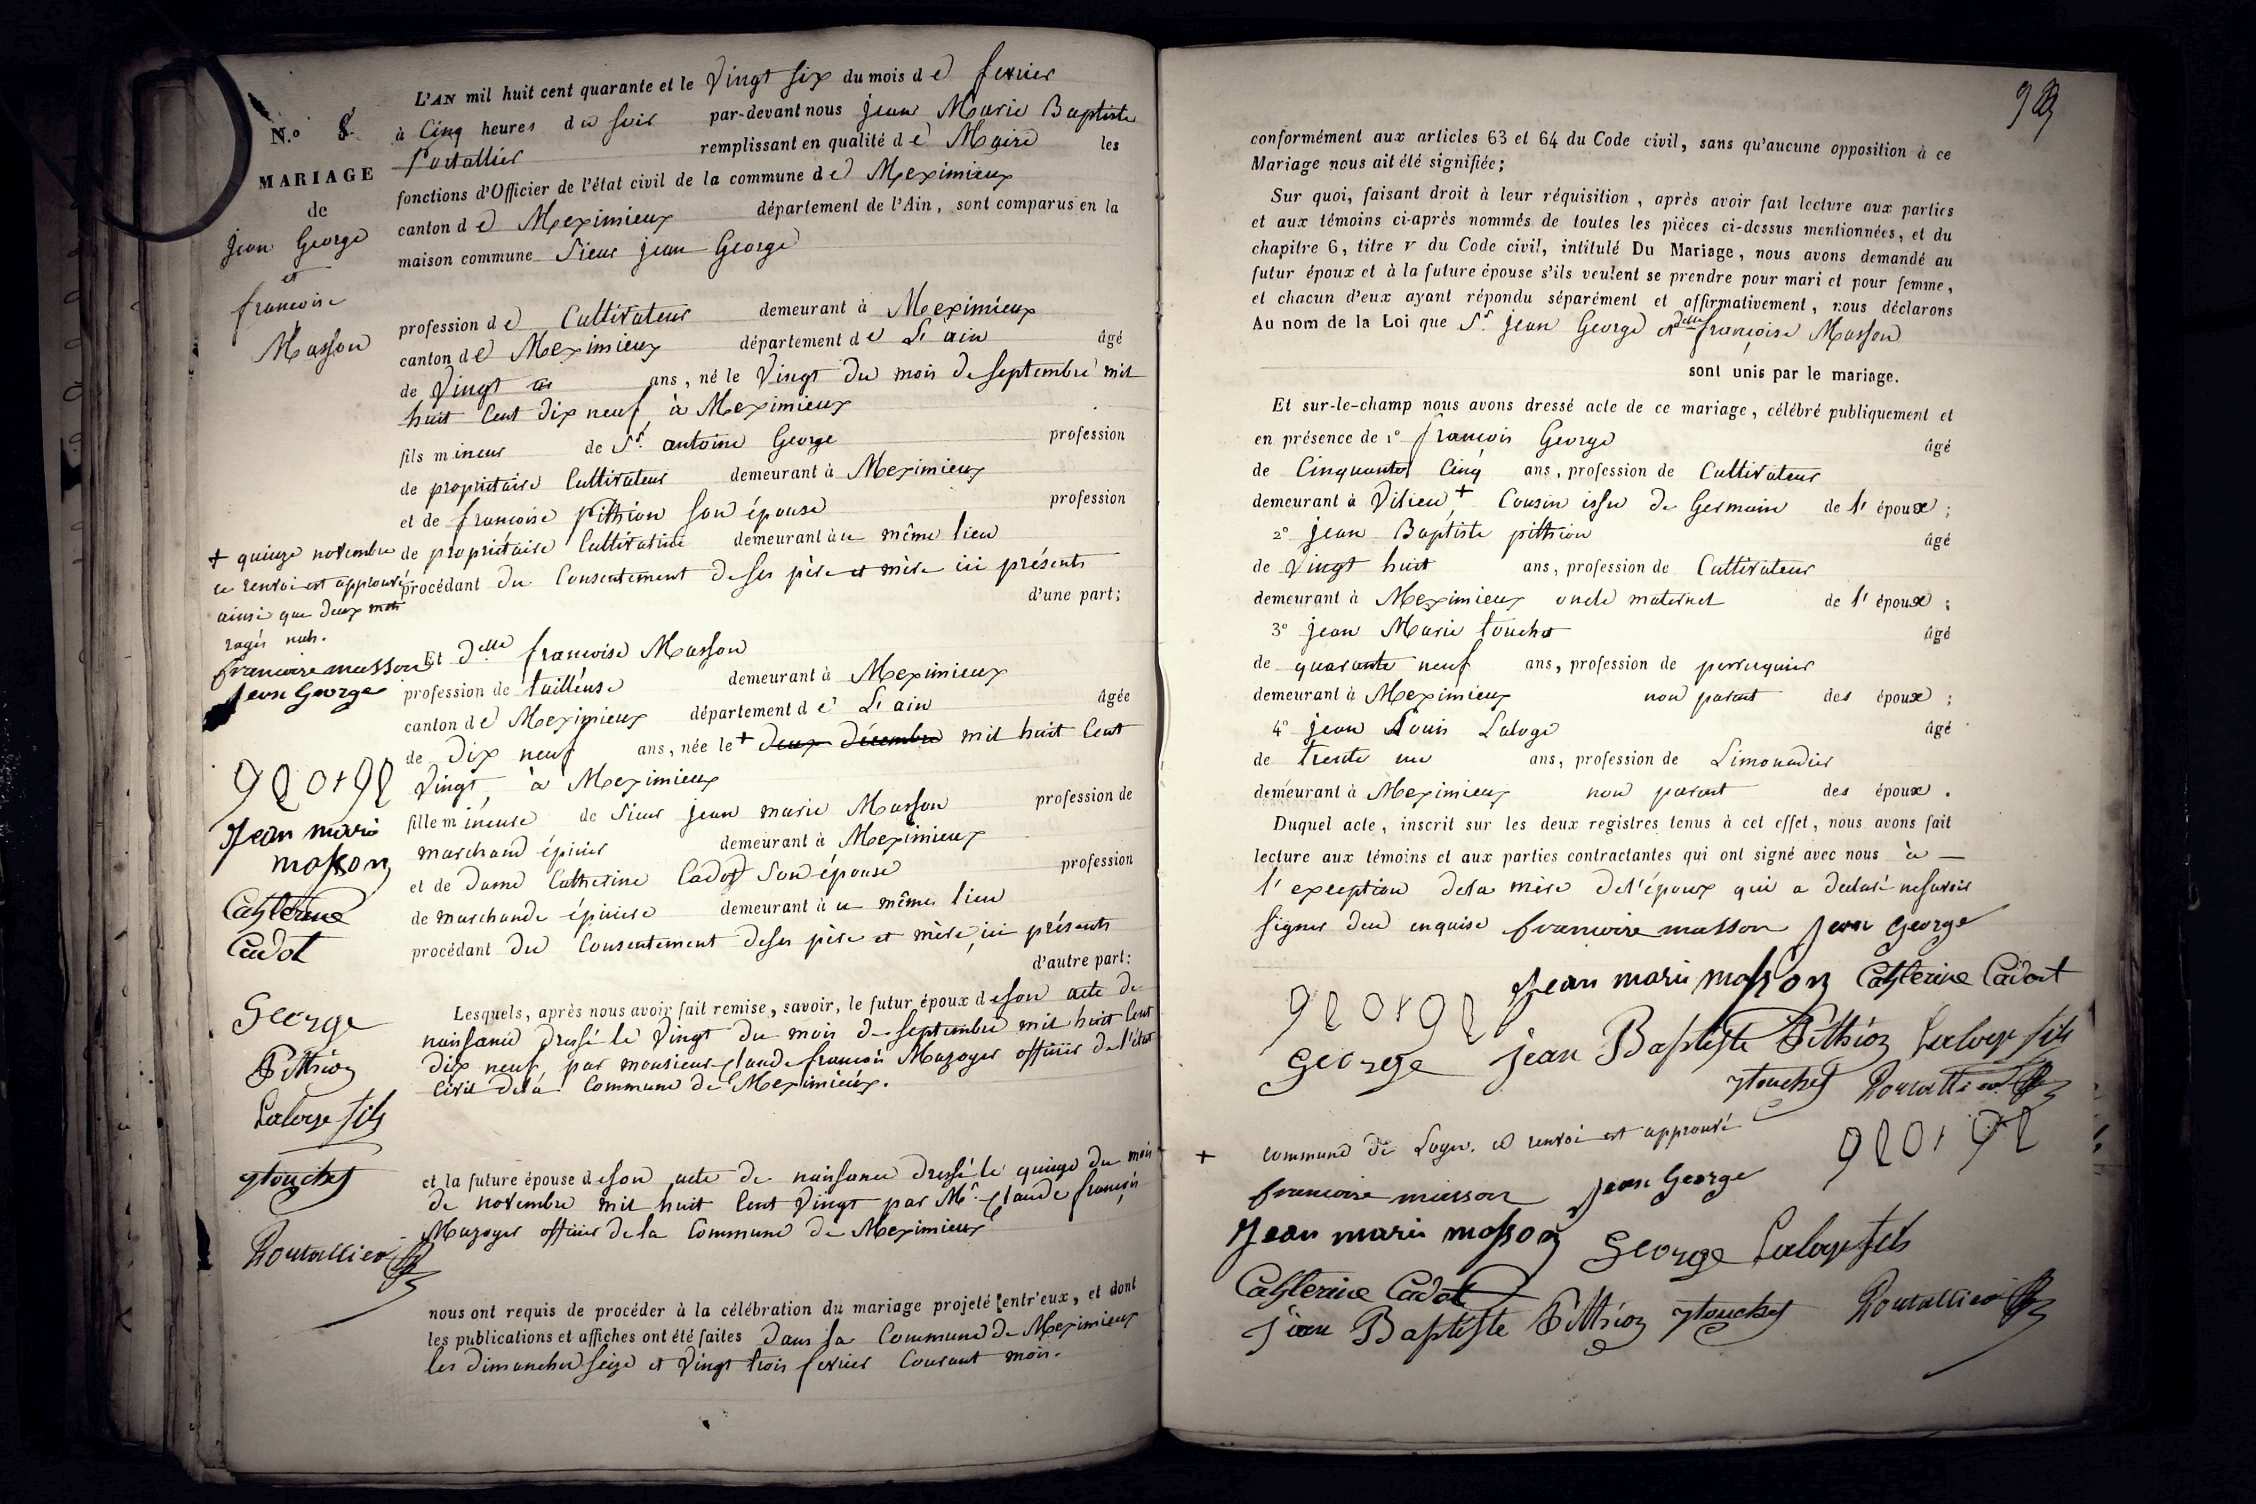 N.º 8.
MARIAGE
de
jean George
et
francoise
Masson
L'AN mil huit cent quarante et le Vingt six du mois de fevrier
à Cinq heures du soir par-devant nous jean Marie Baptiste
Portallier remplissant en qualité de Maire les
fonctions d'Officier de l'état civil de la commune de Meximieux
canton de Meximieux département de l'Ain, sont comparus en la
maison commune Sieur jean George
profession de Cultivateur demeurant à Meximieux
canton de Meximieux département de L'ain âgé
de Vingt ans, né le Vingt du mois de septembre mil
huit Cent dix neuf, à Meximieux
fils mineur de Sr. antoine George profession
de propriétaire Cultivateur demeurant à Meximieux
et de francoise pithion son épouse profession
de propriétaire Cultivatrice demeurant au même lieu
procédant du Consentement de ses père et mère ici présents
d'une part;
+ quinze novembre
ce renvoi est approuvé
ainsi que deux mots
rayés nuls.
francoise masson
Jean George
Et Delle francoise Masson
profession de tailleuse demeurant à Meximieux
canton de Meximieux département de L'ain âgée
de Dix neuf ans, née le + deux décembre mil huit Cent
Vingt, à Meximieux
fille mineure de Sieur jean marie Masson profession de
marchand épicier demeurant à Meximieux
et de Dame Catherine Cadot son épouse profession
de marchande épicière demeurant à ce même lieu
procédant du Consentement de ses père et mère, ici présents
d'autre part:
Jean marie
masson
Catherine
Cadot
George
Pithion
Laloge fils
touchet
Portallier
Lesquels, après nous avoir fait remise, savoir, le futur époux de son acte de
naissance dressé le Vingt du mois de septembre mil huit Cent
dix neuf, par monsieur Claude françois Mazoyer officier de l'état
Civil de la Commune de Meximieux.
et la future épouse de son acte de naissance dressé le quinze du mois
de novembre mil huit Cent Vingt par Mr. Claude françois
Mazoyer officier de la Commune de Meximieux
nous ont requis de procéder à la célébration du mariage projeté entr'eux, et dont
les publications et affiches ont été faites dans la Commune de Meximieux
les dimanches seize et Vingt trois fevrier Courant mois.
conformément aux articles 63 et 64 du Code civil, sans qu'aucune opposition à ce
Mariage nous ait été signifiée;
Sur quoi, faisant droit à leur réquisition, après avoir fait lecture aux parties
et aux témoins ci-après nommés de toutes les pièces ci-dessus mentionnées, et du
chapitre 6, titre v du Code civil, intitulé Du Mariage, nous avons demandé au
futur époux et à la future épouse s'ils veulent se prendre pour mari et pour femme,
et chacun d'eux ayant répondu séparément et affirmativement, nous déclarons
Au nom de la Loi que Sr. jean George et Delle françoise Masson
sont unis par le mariage.
Et sur-le-champ nous avons dressé acte de ce mariage, célébré publiquement et
en présence de 1º francois George âgé
de Cinquante Cinq ans, profession de Cultivateur
demeurant à Vilieu + Cousin issu de Germain de l'époux;
2º jean Baptiste pithion âgé
de Vingt huit ans, profession de Cultivateur
demeurant à Meximieux oncle maternel de l'époux;
3º jean Marie touchet âgé
de quarante neuf ans, profession de perruquier
demeurant à Meximieux non parent des époux;
4º jean Louis Laloge âgé
de trente un ans, profession de Limonadier
demeurant à Meximieux non parent des époux.
Duquel acte, inscrit sur les deux registres tenus à cet effet, nous avons fait
lecture aux témoins et aux parties contractantes qui ont signé avec nous à
l'exception de la mère de l'époux qui a déclaré ne savoir
signer de ce enquise francoise masson Jean George
Jean marie masson Catherine Cadot
George jean Baptiste Pithion Laloge fils
touchet Portallier
+ commune de Loyes. ce renvoi est approuvé
francoise masson Jean George
Jean marie masson George Laloge fils
Catherine Cadot
jean Baptiste Pithion touchet Portallier